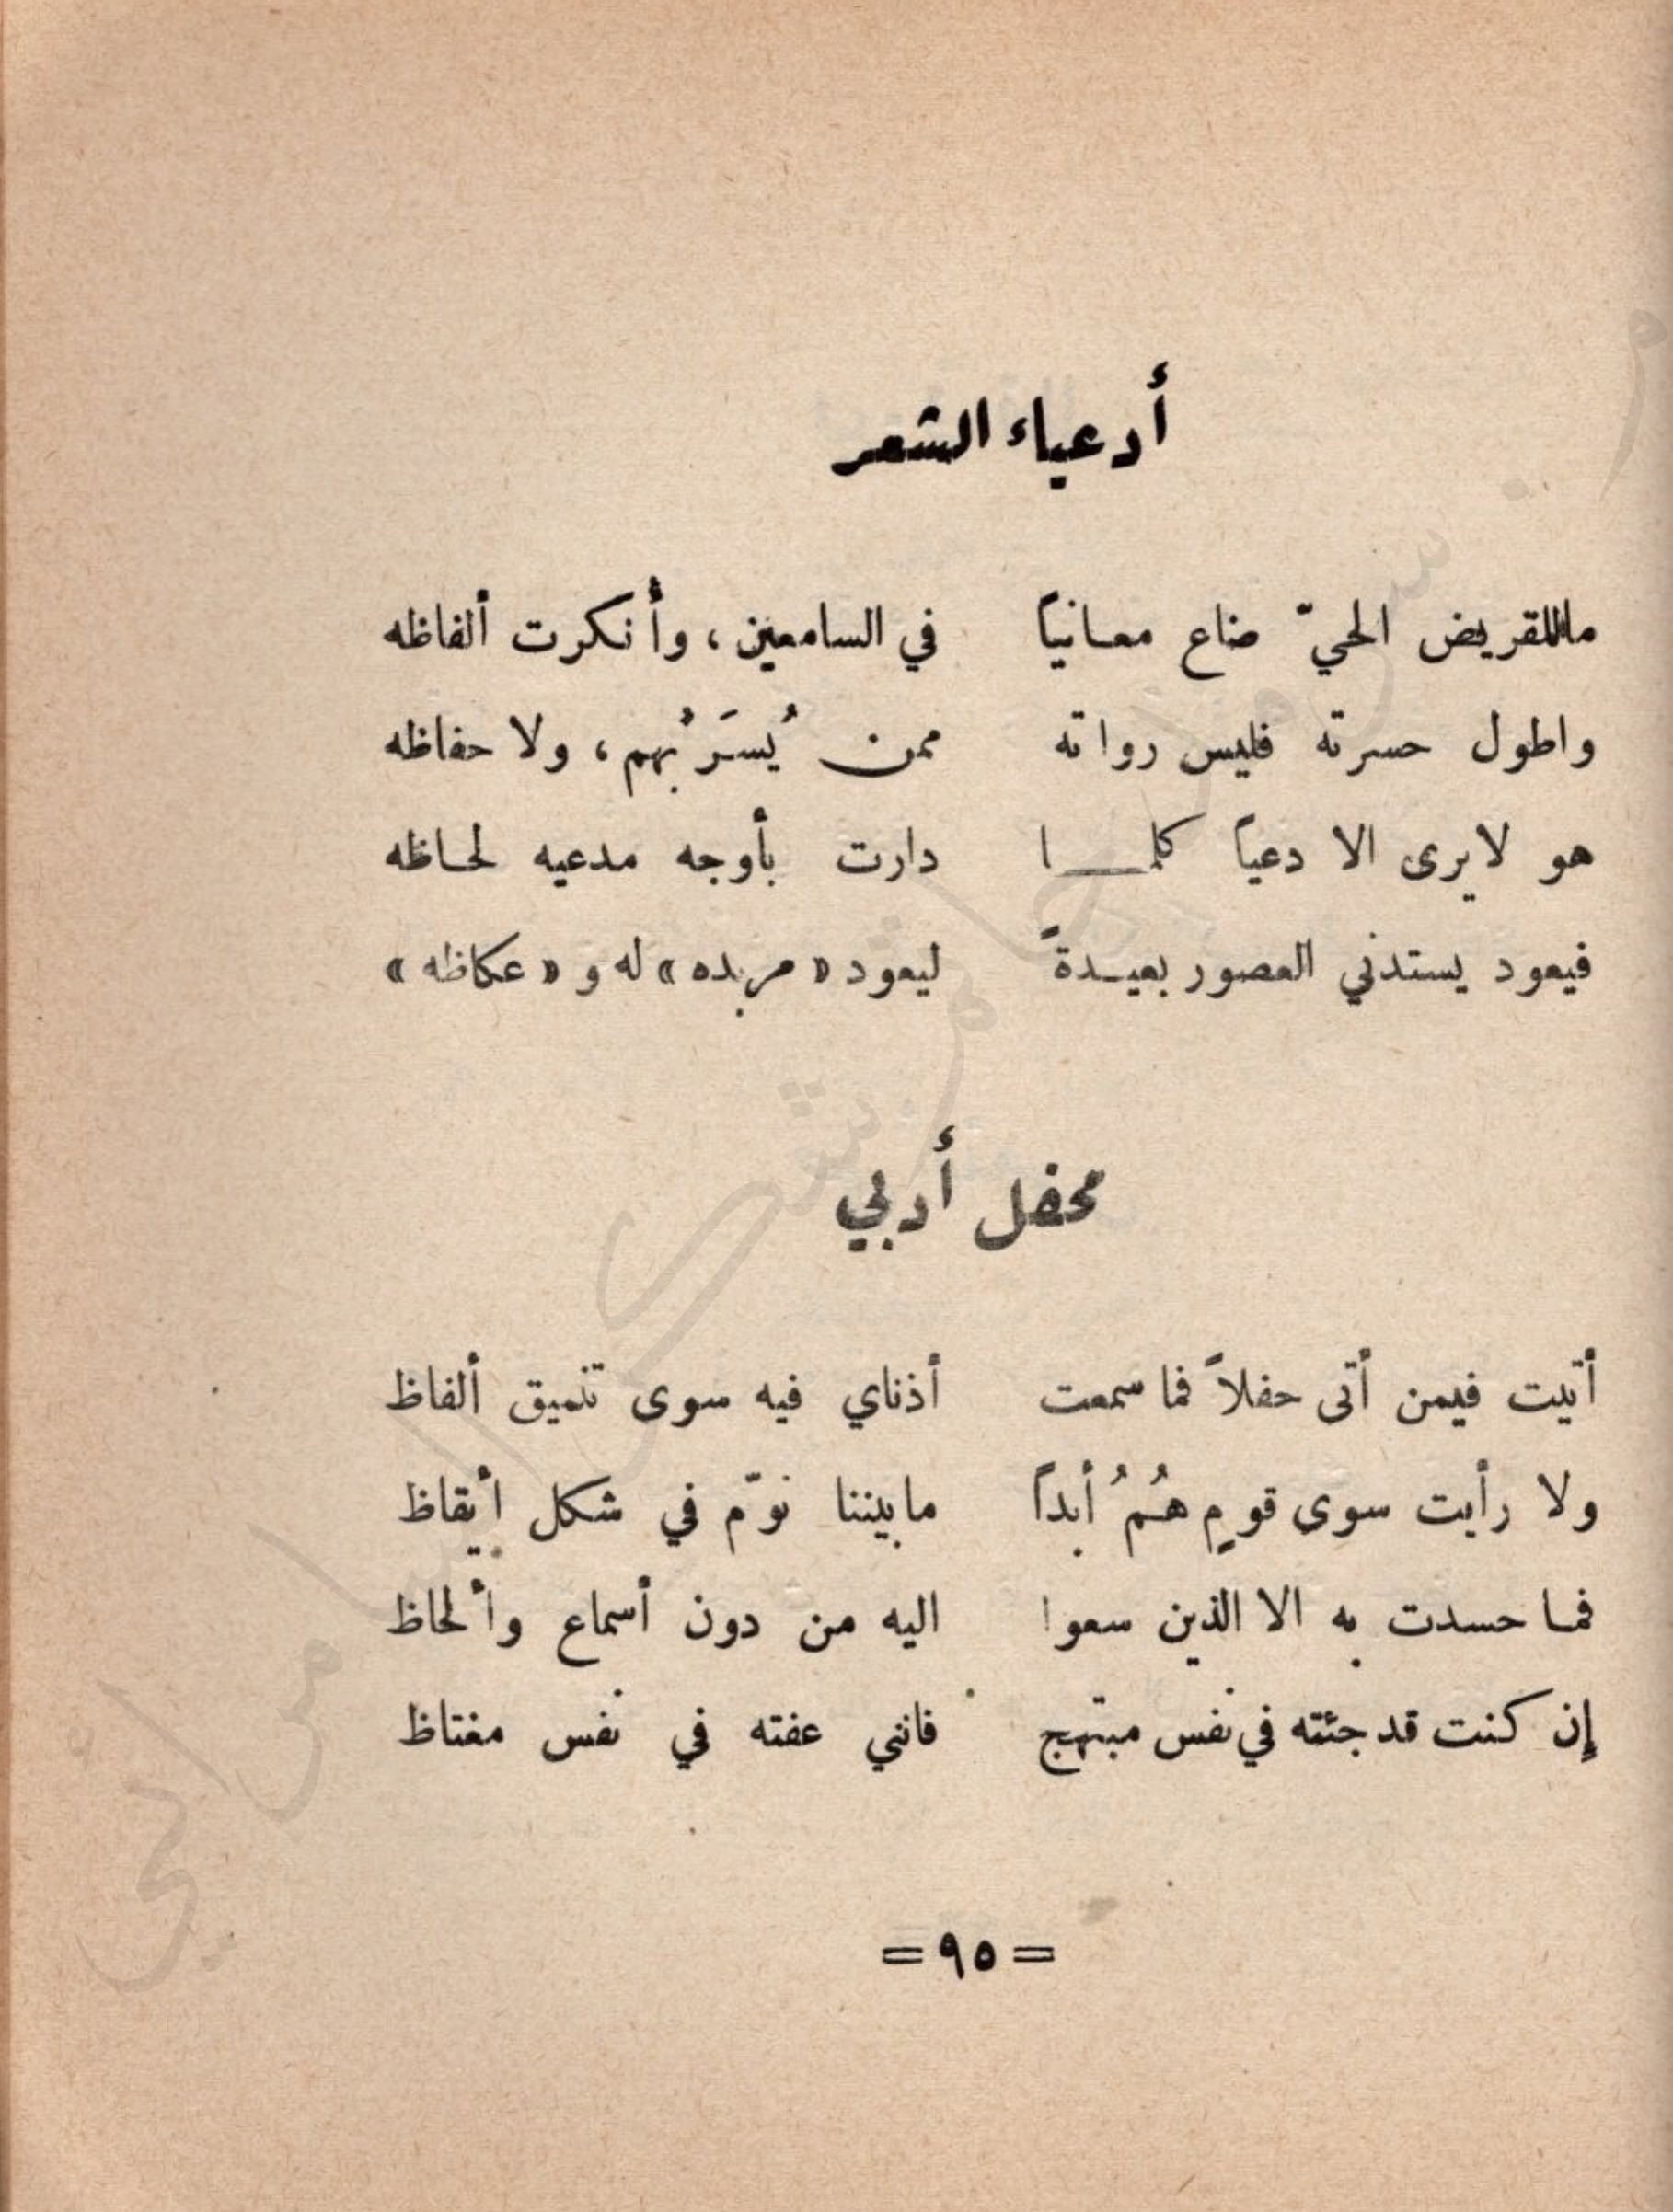 أدعياء الشعر
ماللقريض الحيّ ضاع معانياً في السامعين، وأنكرت ألفاظه
واطول حسرته فليس رواته ممن يُسَرُّ بهم، ولا حفاظه
هو لايرى الا دعياً كلما دارت بأوجه مدعيه لحاظه
فيعود يستدني العصور بعيدةً ليعود «مربده» له و «عكاظه»
محفل أدبي
أتيت فيمن أتى حفلاً فما سمعت أذناي فيه سوى تنميق ألفاظ
ولا رأيت سوى قومٍ هُمُ أبداً مابيننا نوّم في شكل أيقاظ
فما حسدت به الا الذين سعوا اليه من دون أسماع وألحاظ
إن كنت قد جئته في نفس مبتهج فانني عفته في نفس مغتاظ
= ٩٥ =